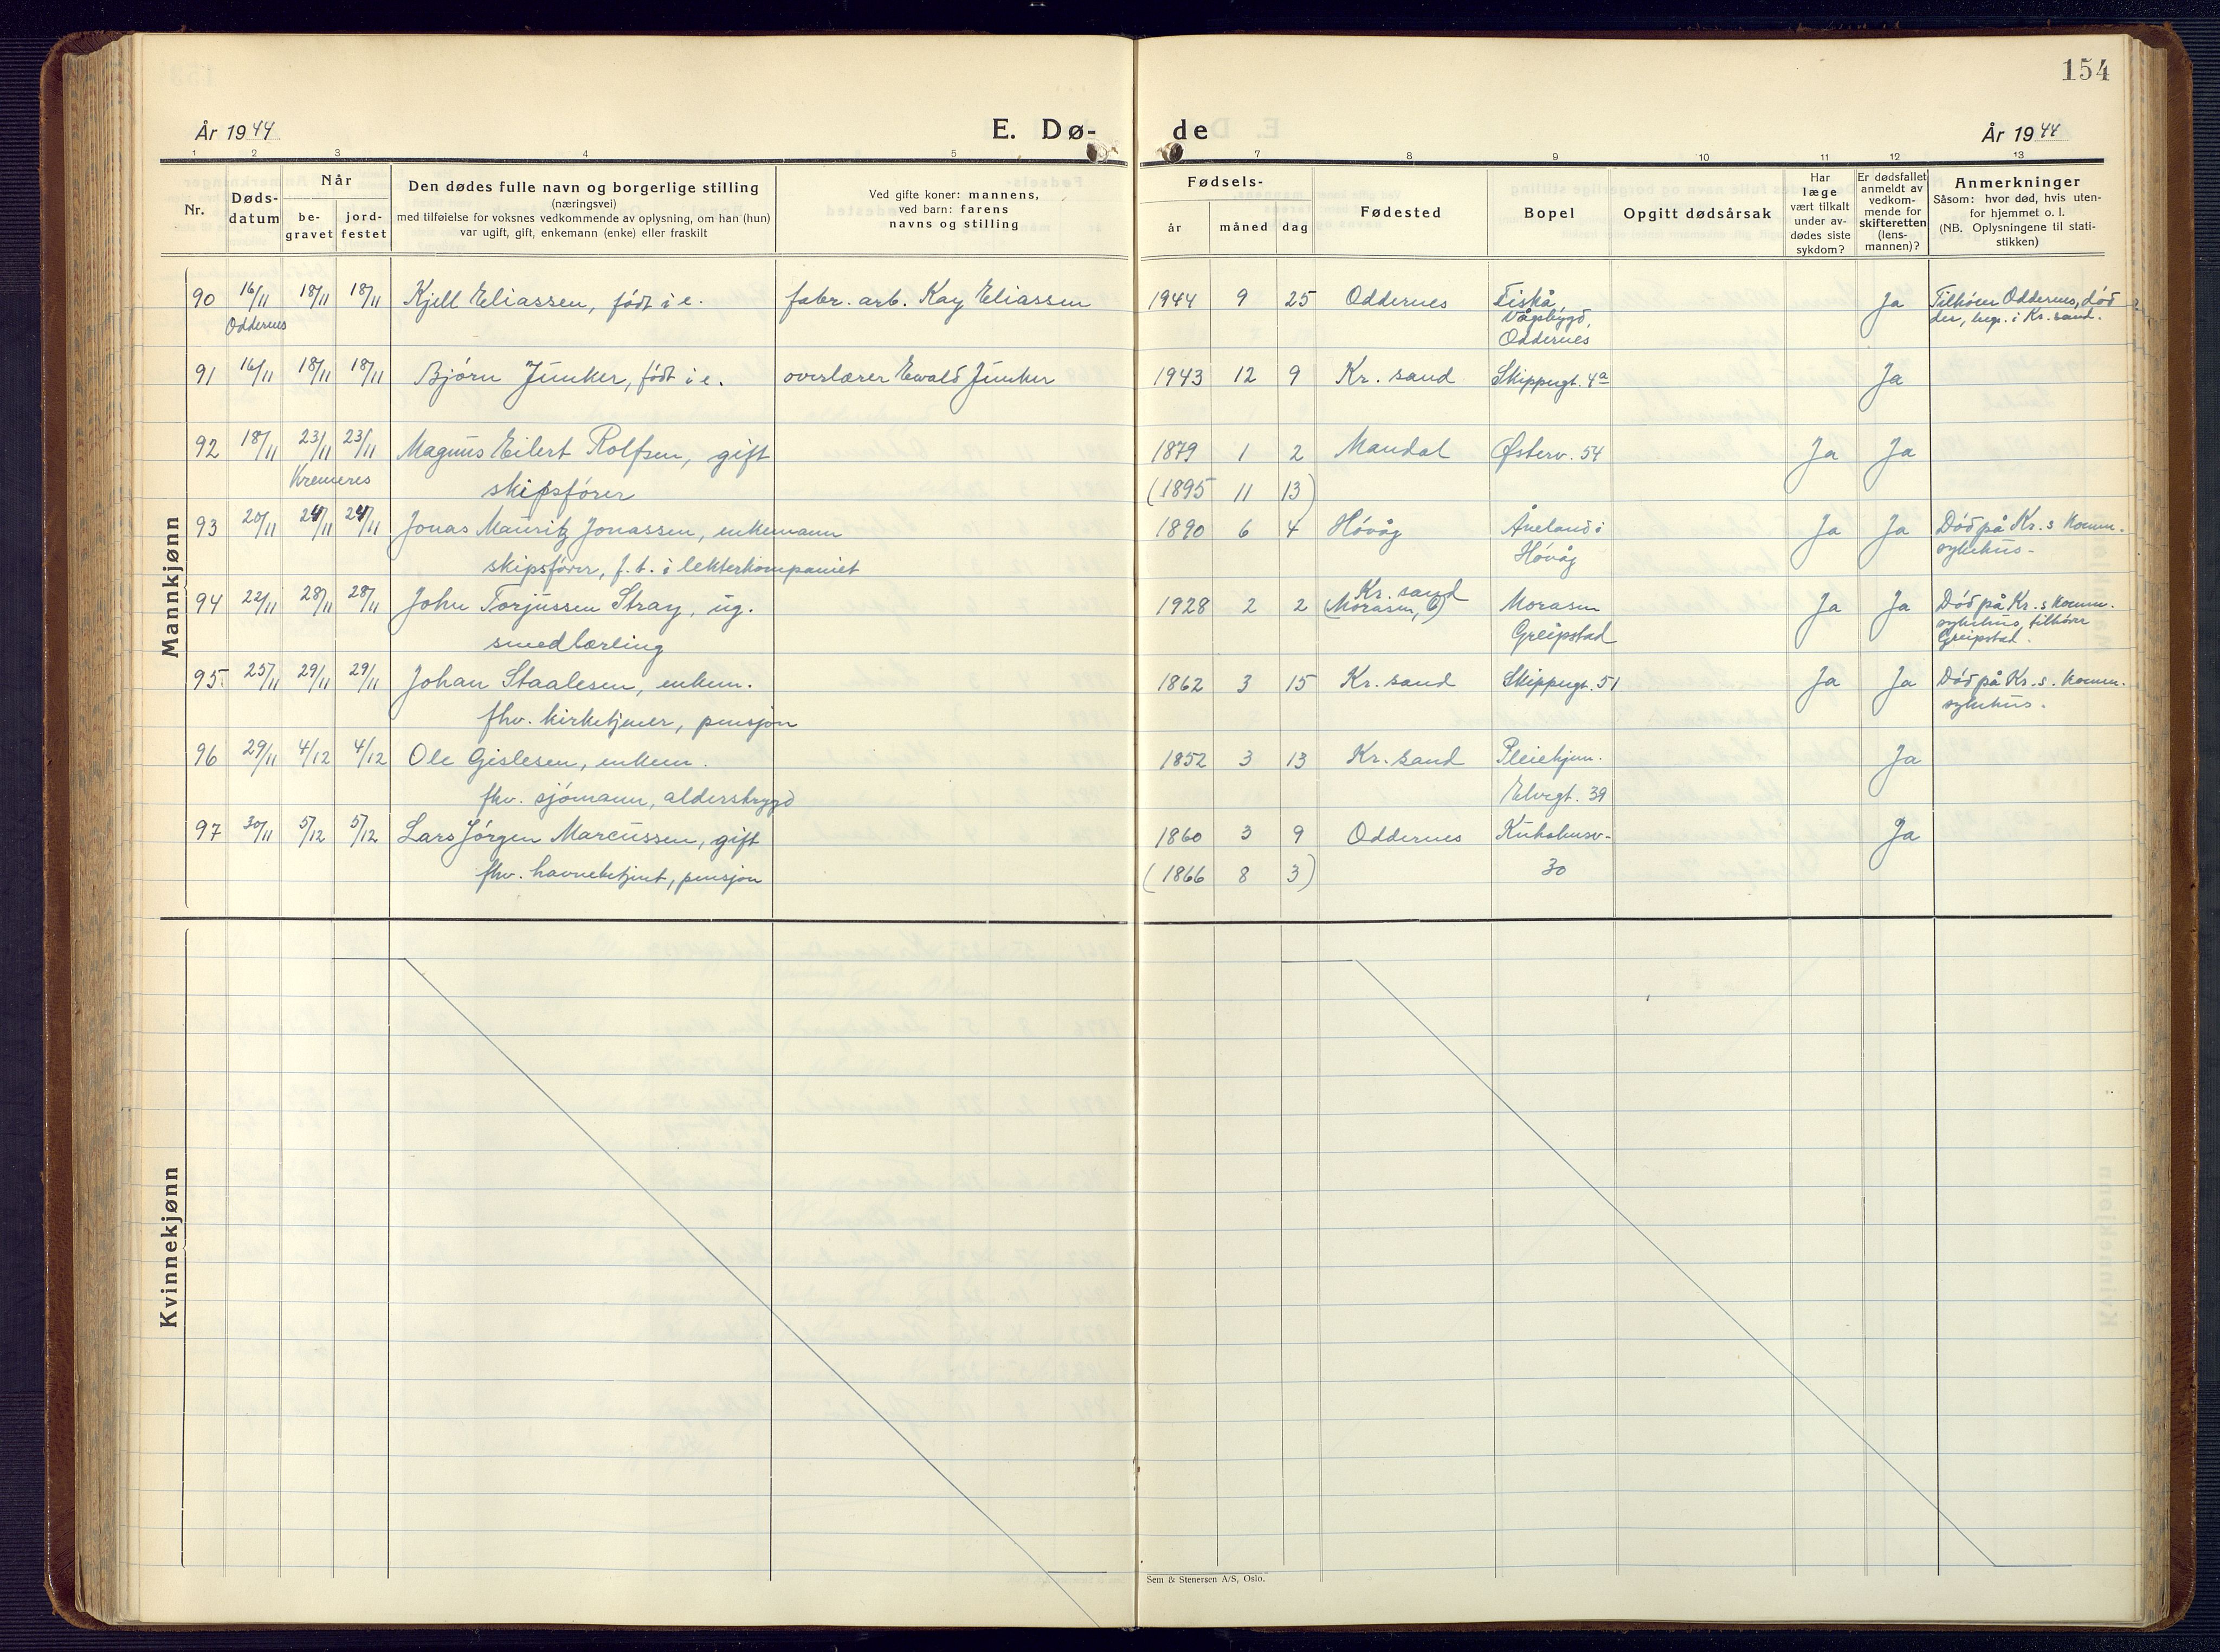 154
År 1944 E. Dø- de År 1944
1 2 3 4 5 7 8 9 10 11 12 13
Nr.
Døds-
datum
Når
be-
gravet
jord-
festet
Den dødes fulle navn og borgerlige stilling
(næringsvei)
med tilføielse for voksnes vedkommende av oplysning, om han (hun)
var ugift, gift, enkemann (enke) eller fraskilt
Ved gifte koner: mannens,
ved barn: farens
navns og stilling
Fødsels-
år måned dag
Fødested
Bopel
Opgitt dødsårsak
Har
læge
vært tilkalt
under av-
dødes siste
sykdom?
Er dødsfallet
anmeldt av
vedkom-
mende for
skifteretten
(lens-
mannen)?
Anmerkninger
Såsom: hvor død, hvis uten-
for hjemmet o. l.
(NB. Oplysningene til stati-
stikken)
Mannkjønn
90 16/11 18/11 18/11 Kjell Eliassen, født i e. fabr. arb. Kay Eliassen 1944 9 25 Oddernes Fiskå Ja Tilhører Oddernes, død
Oddernes Vågsbygd, der, begr. i Kr. sand.
Oddernes
91 16/11 18/11 18/11 Bjørn Junker, født i e. overlærer Ewald Junker 1943 12 9 Kr. sand Skippergt. 4a Ja
92 18/11 23/11 23/11 Magnus Eilert Rolfsen, gift 1879 1 2 Mandal Østerv. 54 Ja Ja
Kremeres skipsfører (1895 11 13)
93 20/11 24/11 24/11 Jonas Mauritz Jonassen, enkemann 1890 6 4 Høvåg Åveland i Ja Ja Død på Kr. s Komm.
skipsfører, f. t. i lekterkompaniet Høvåg sykehus.
94 22/11 28/11 28/11 John Torjussen Stray, ug. 1928 2 2 Kr. sand (Morasen, G) Morasen Ja Ja Død på Kr. s Komm.
smedlærling Greipstad sykehus, tilhører
Greipstad.
95. 25/11 29/11 29/11 Johan Staalesen, enkem. 1862 3 15 Kr. sand Skippergt. 51 Ja Ja Død på Kr. s. Komm.
fhv. kirketjener, pensjon sykehus.
96 29/11 4/12 4/12 Ole Gislesen, enkem. 1852 3 13 Kr. sand Pleiehjem. Ja
fhv. sjømann, alderstrygd Elvegt. 39
97 30/11 5/12 5/12 Lars Jørgen Marcussen, gift 1860 3 9 Oddernes Kuholmsv. Ja
fhv. havnebetjent, pensjon (1866 8 3) 30
Kvinnekjønn
Sem & Stenersen A/S, Oslo.